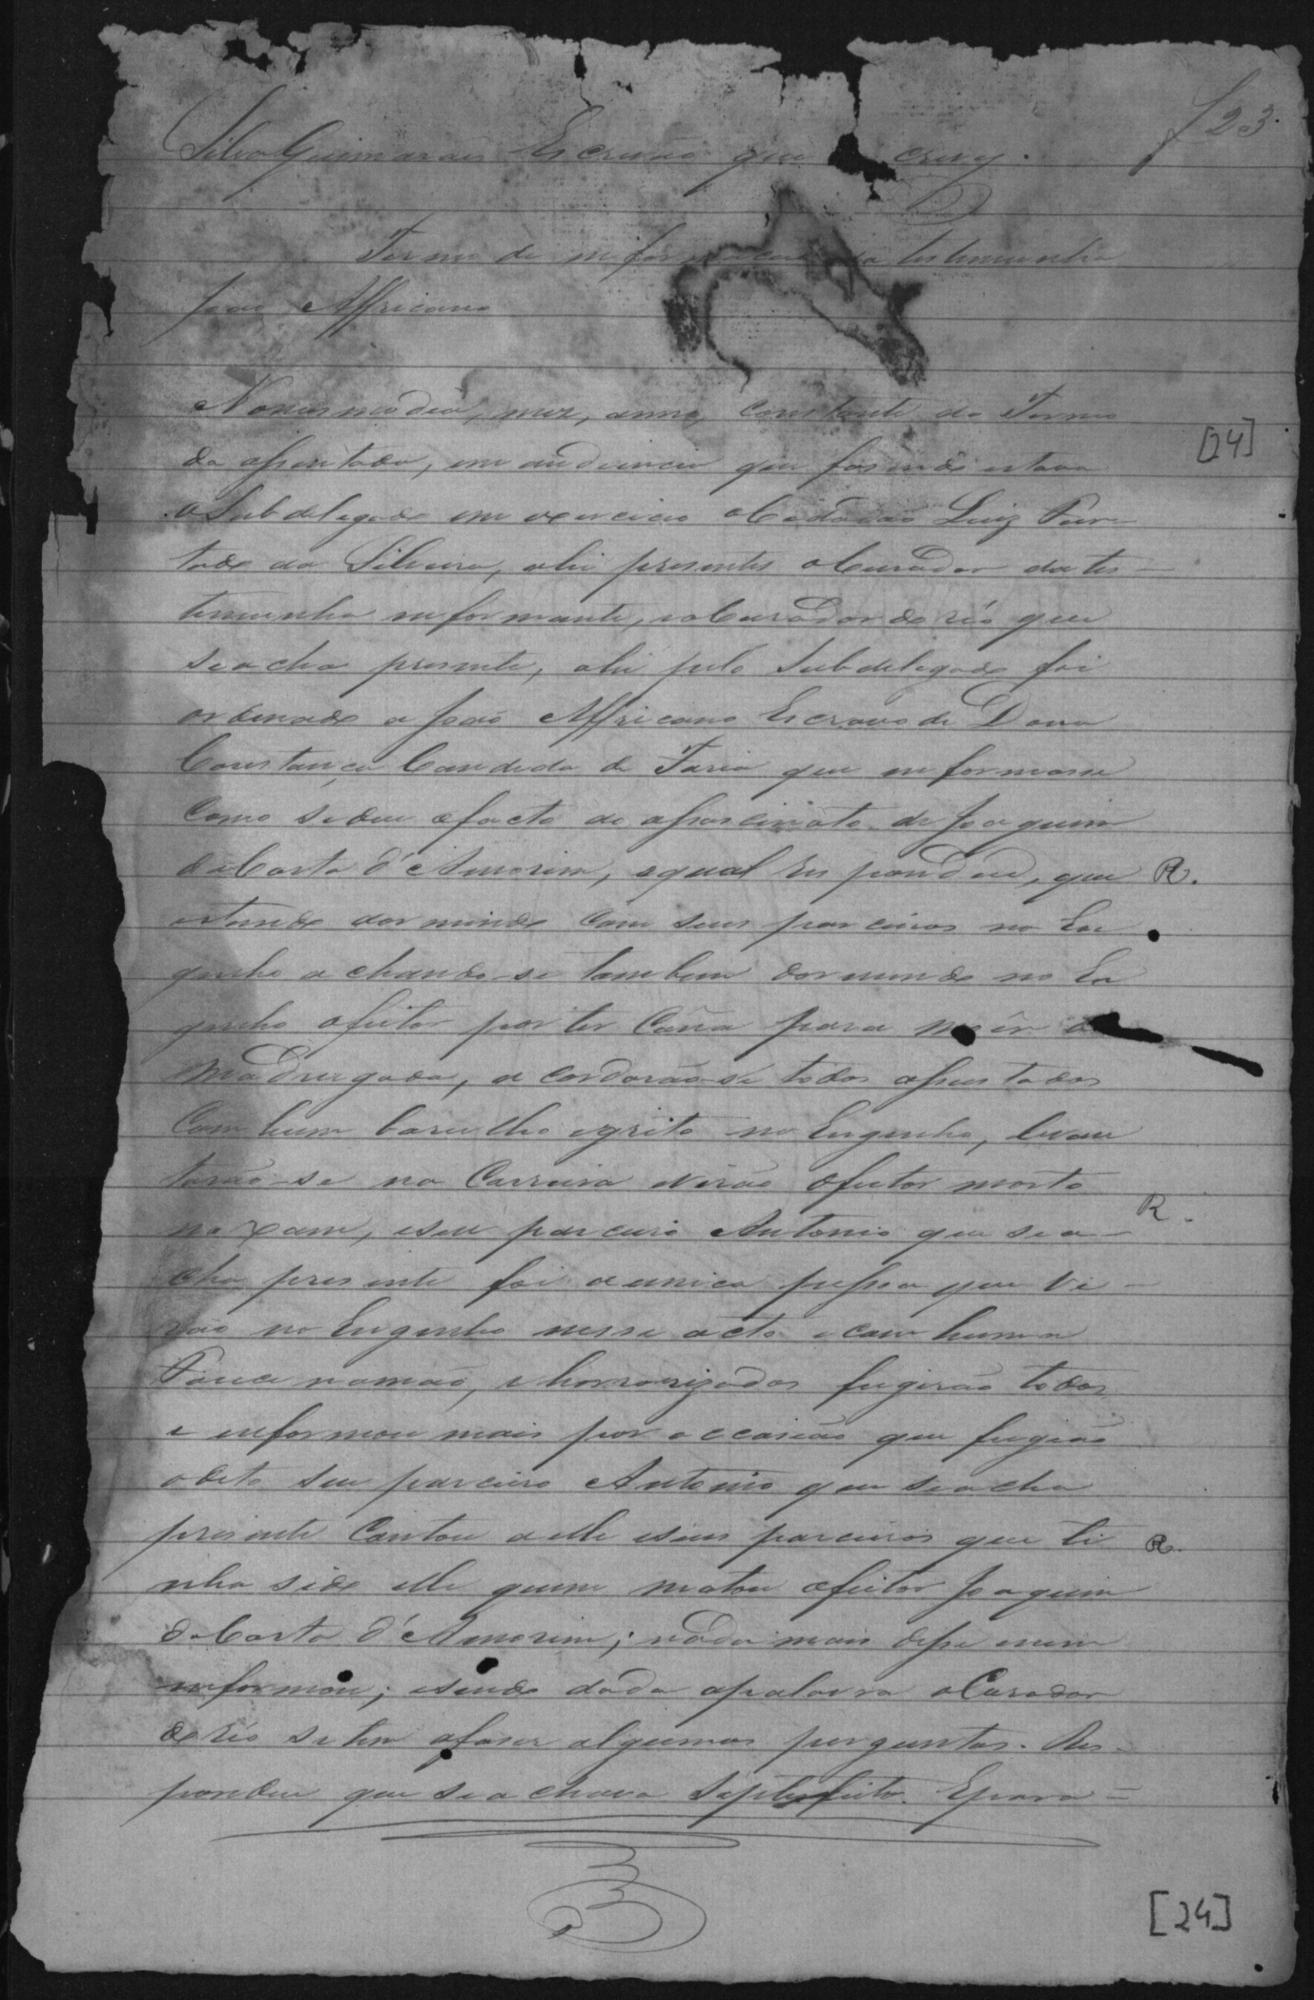 f 23.
Silva Guimarães Escrivão que crevy.
Termo de informacão da testemunha
João Affricano
[24]
No mesmo dia, mez, anno, constante do Termo
da assentada, em audiencia que fasendo estava
o Subdelegado em exercicio o Cidadão Luiz Fur-
tado da Silveira, ahi presentes o Curador da tes-
temunha informante, e o Curador do réo que
se acha presente, ahi pelo Subdelegado foi
ordenado a João Affricano Escravo de Dona
Constança Candida de Faria que informasse
como se deu o facto do assassinato de Joaquim
da Costa d'Amorim, e qual respondeu, que R.
estando dormindo com seus parceiros no En
genho achando-se tambem dormindo no En
genho o feitor por ter Cana para moêr de
Madrugada, acordarão-se todos assustados
Com hum barulho e grito no Engenho, levan
tarão-se na Carreira e virão o feitor morto
no xam, e seu parceiro Antonio que se a- R.
cha presente foi a unica pessoa que vi-
rão no Engenho nesse acto e com huma
Fouce na mão, e horrorizados fugirão todos,
e informou mais por occasião que fugião
o dito seu parceiro Antonio que se acha
presente Contou a elle e seus parceiros que ti R.
nha sido elle quem matou o feitor Joaquim
da Costa d'Amorim; nada mais disse nem
informou; e sendo dada a palavra o Curador
do réo se tem a faser algumas perguntas. Res-
pondeu que se achava Satisfeito. E para-
[24]